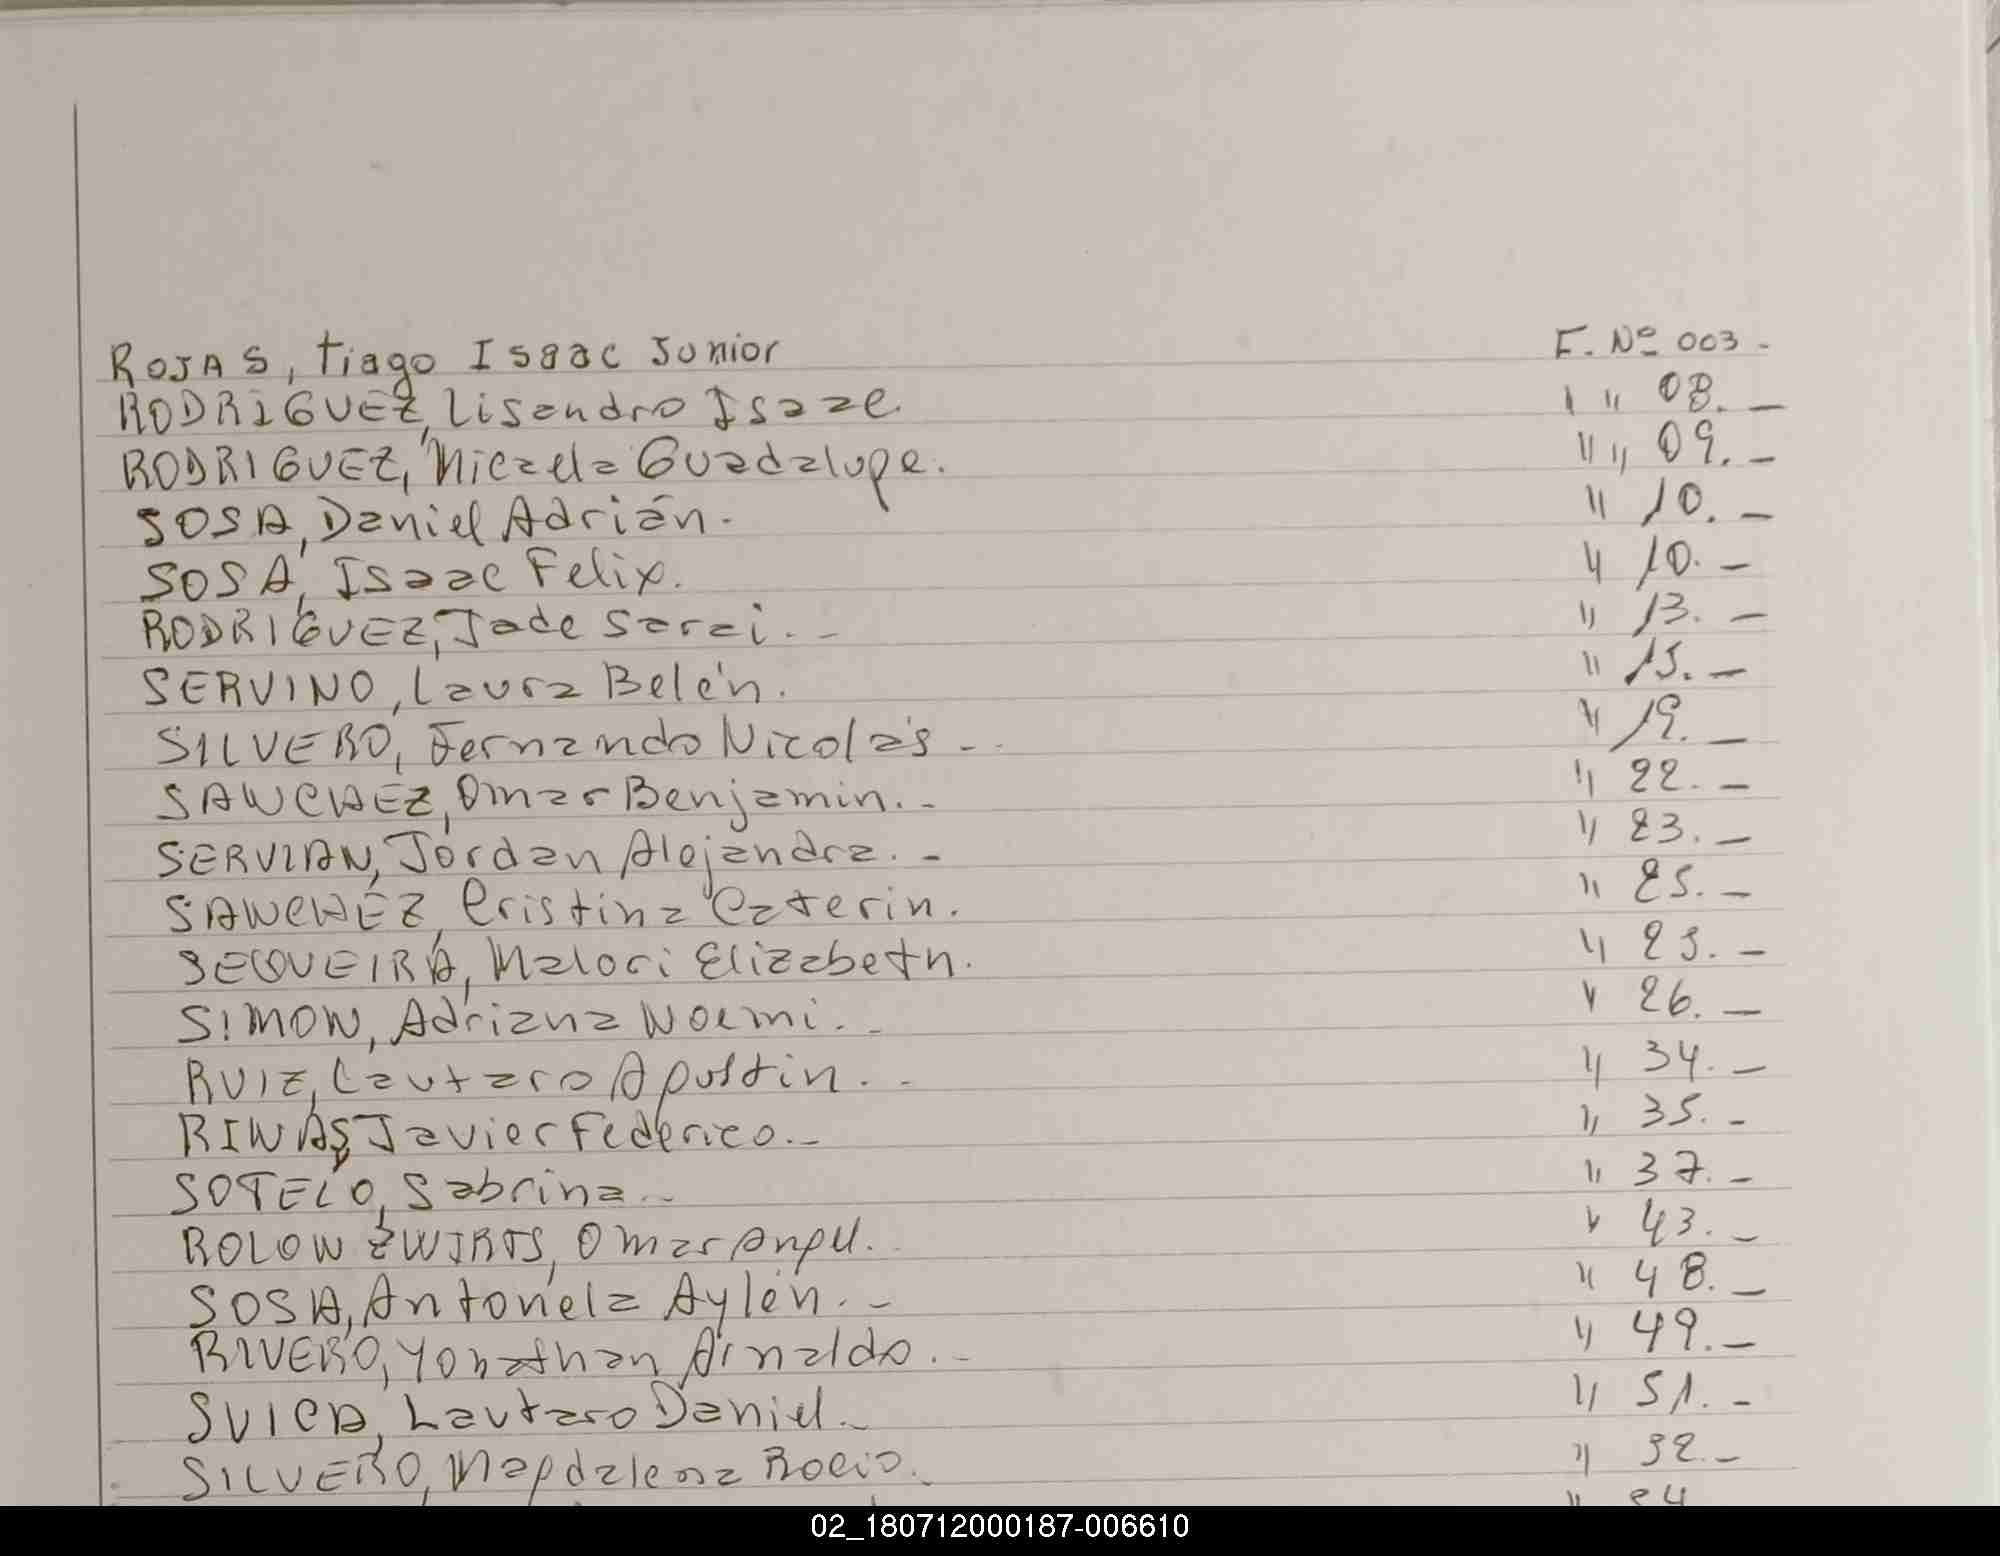 ROJAS, Tiago Isaac Junior F. Nº 003 -
RODRIGUEZ, Lisandro Isaac. " " 08. -
RODRIGUEZ, Micaela Guadalupe. " " 09. -
SOSA, Daniel Adrián. " 10. -
SOSA, Isaac Felix. " 10. -
RODRIGUEZ, Jade Sarai. - " 13. -
SERVINO, Laura Belén. " 15. -
SILVERO, Fernando Nicolás - " 19. -
SANCHEZ, Omar Benjamin. - " 22. -
SERVIAN, Jordan Alejandra. - " 23. -
SANCHEZ, Cristina Caterin. " 25. -
SEQUEIRA, Malori Elizabeth. " 25. -
SIMON, Adriana Noemi. - " 26. -
RUIZ, Lautaro Agustin. - " 34. -
RINAS, Javier Federico. - " 35. -
SOTELO, Sabrina. - " 37. -
ROLON ZWIRTS, Omar Angel. " 43. -
SOSA, Antonela Aylén. - " 48. -
RIVERO, Yonathan Arnaldo. - " 49. -
SVICA, Lautaro Daniel. - " 51. -
SILVERO, Magdalena Rocio. " 52. -
02_180712000187-006610